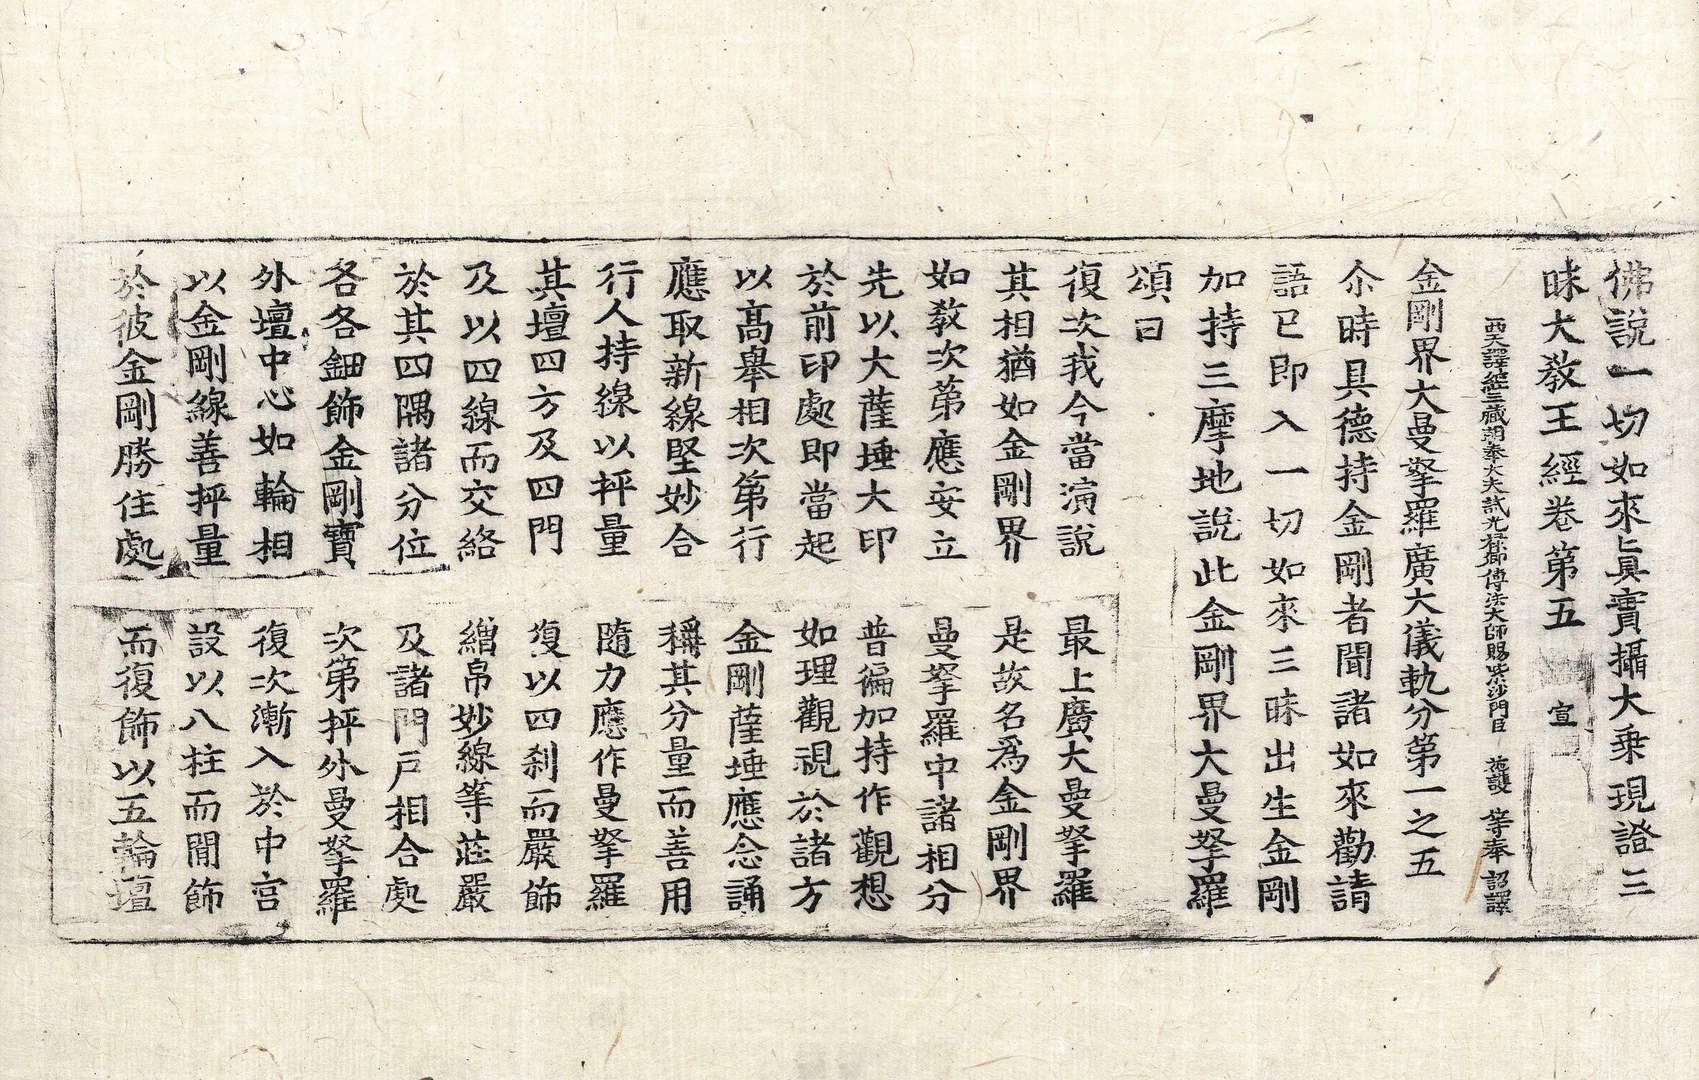 佛說一切如來眞實攝大乘現證三
昧大教王經卷第五 宣
西天譯經三藏朝奉大夫試光祿卿傳法大師賜紫沙門臣 施護 等奉 詔譯
金剛界大曼拏羅廣大儀軌分第一之五
尒時具德持金剛者聞諸如來勸請
語已即入一切如來三昧出生金剛
加持三摩地說此金剛界大曼拏羅
頌曰
復次我今當演說 最上廣大曼拏羅
其相猶如金剛界 是故名爲金剛界
如教次第應安立 曼拏羅中諸相分
先以大薩埵大印 普徧加持作觀想
於前印處即當起 如理觀視於諸方
以高舉相次第行 金剛薩埵應念誦
應取新線堅妙合 稱其分量而善用
行人持線以抨量 隨力應作曼拏羅
其壇四方及四門 復以四刹而嚴飾
及以四線而交絡 繒帛妙線等莊嚴
於其四隅諸分位 及諸門戶相合處
各各鈿飾金剛寶 次第抨外曼拏羅
外壇中心如輪相 復次漸入於中宮
以金剛線善抨量 設以八柱而間飾
於彼金剛勝住處 而復飾以五輪壇